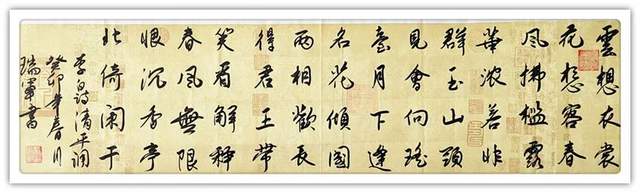 雲想衣裳
花想容春
風拂檻露
華濃若非
群玉山頭
見會向瑤
臺月下逢
名花傾國
兩相歡長
得君王帶
笑看解釋
春風無限
恨沉香亭
北倚闌干
李白詩清平調
癸卯年春月
瑞軍書